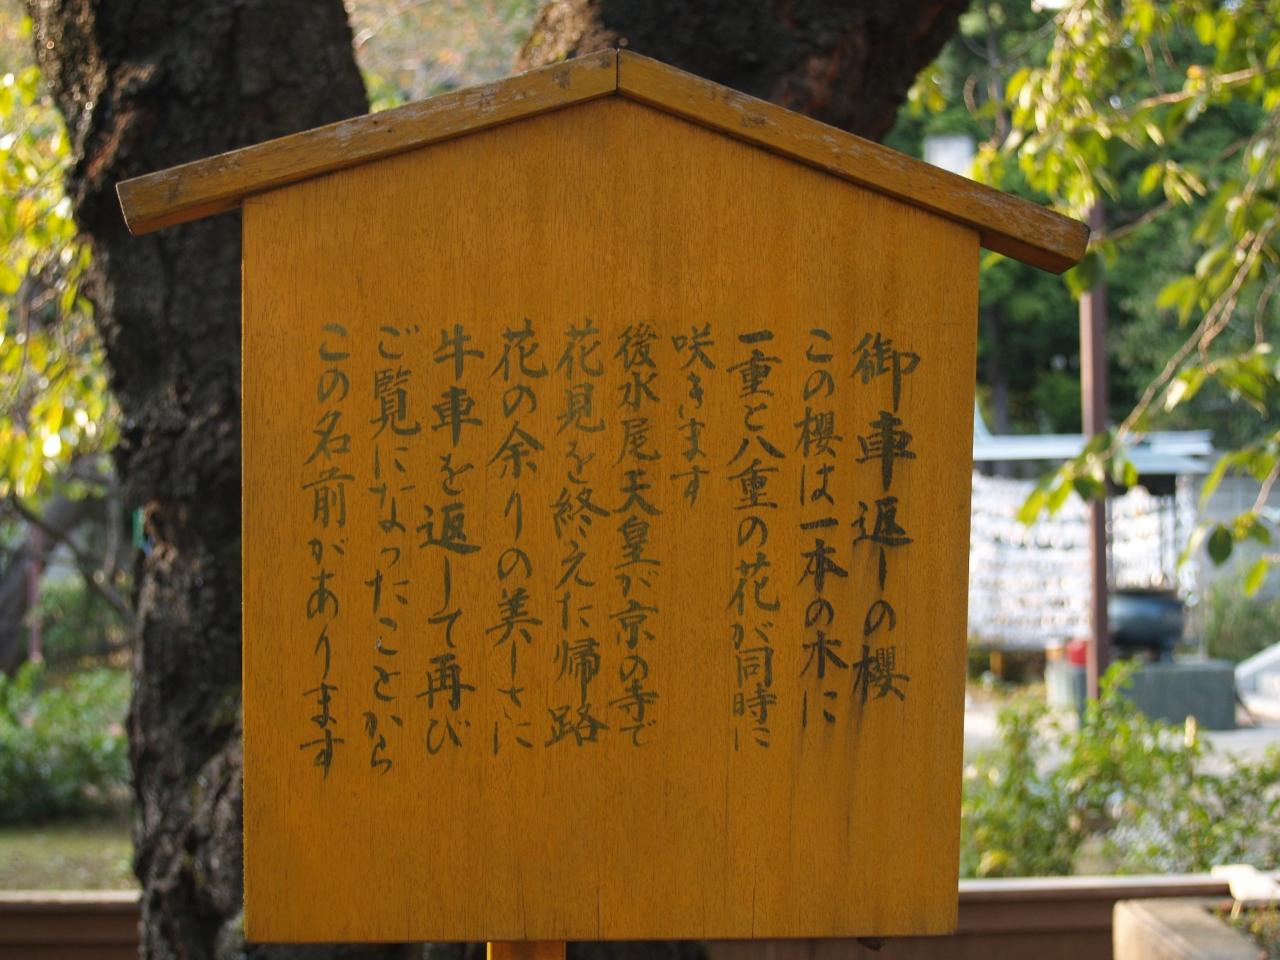 御車返しの櫻
この櫻は一本の木に
一重と八重の花が同時に
咲きます
後水尾天皇が京の寺で
花見を終えた帰路
花の余りの美しさに
牛車を返して再び
ご覧になったことから
この名前があります